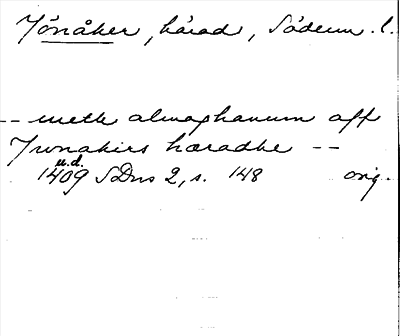 Jönåker, härad, Söderm. l.
-- meth almoghanum aff
Junakirs hæradhe --
u.d.
1409 SDns 2, s. 148 orig.